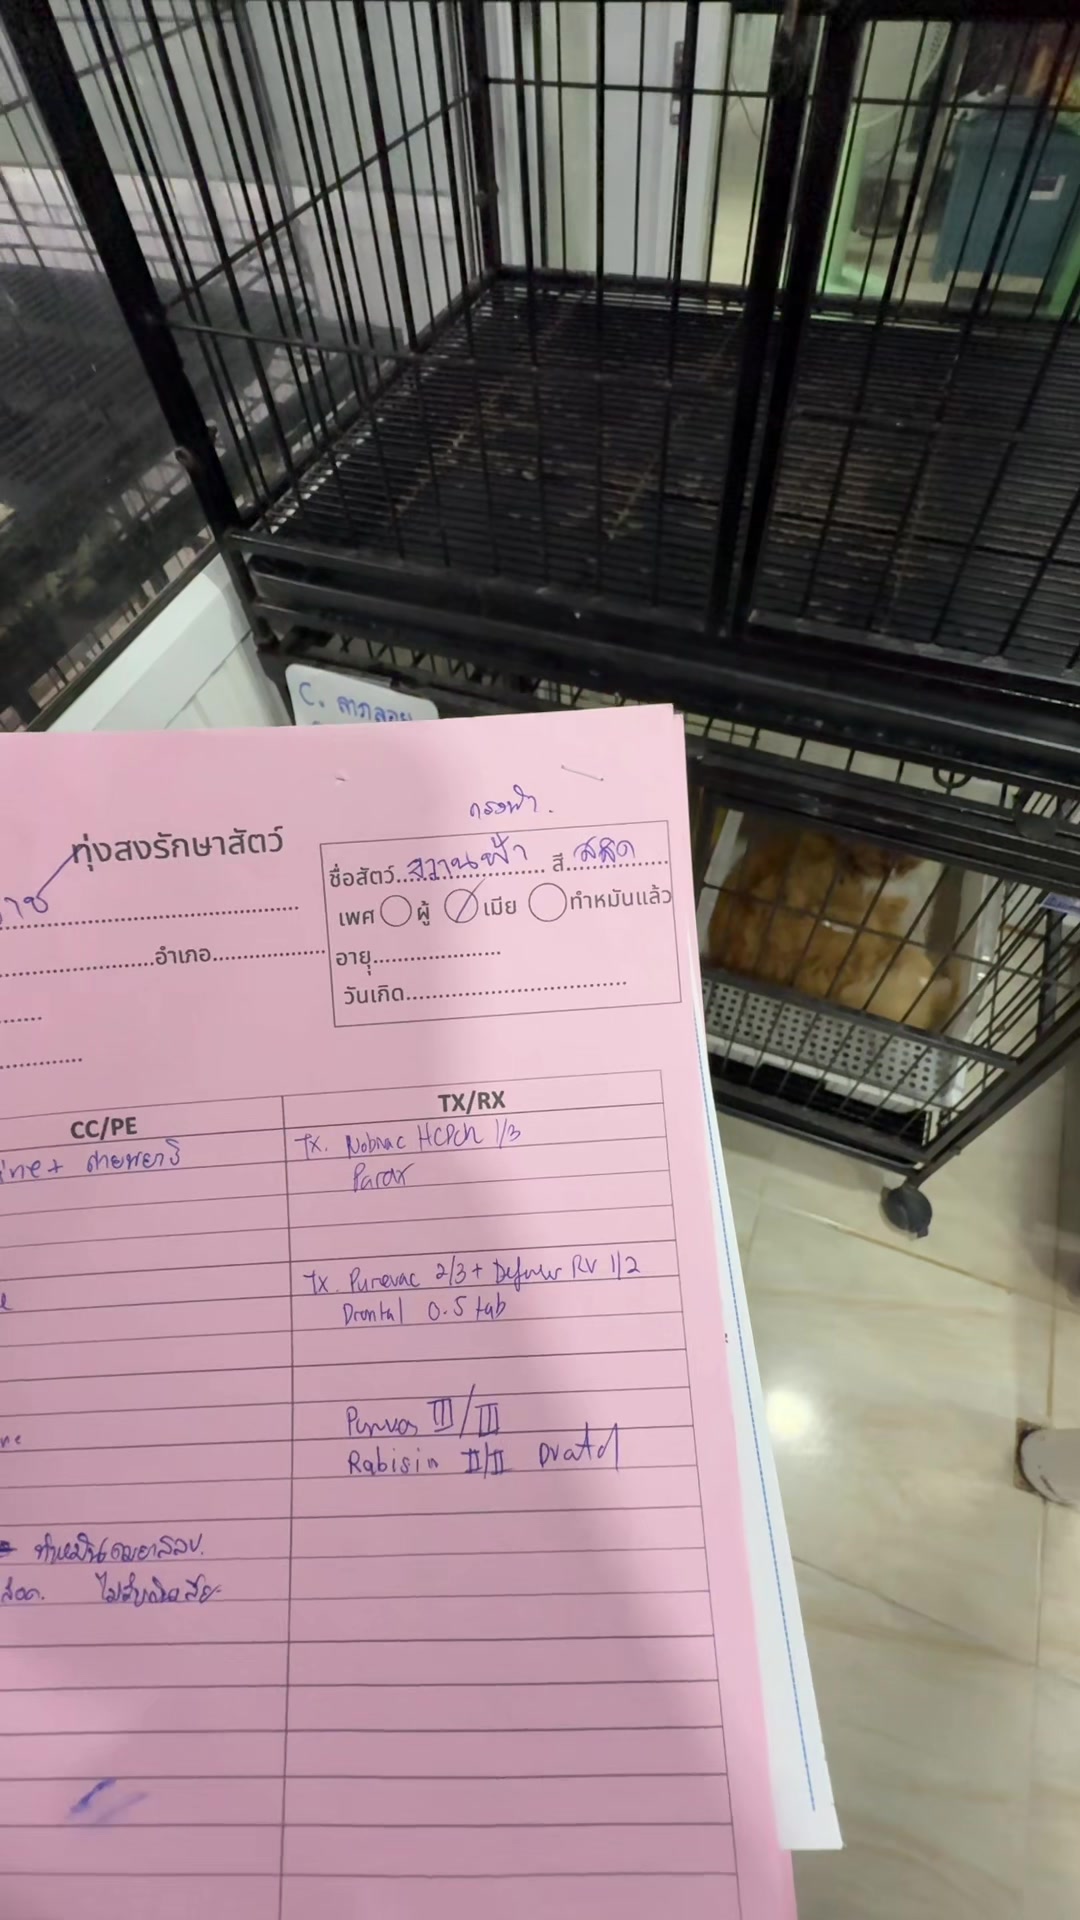 C. ลาภลอย
กรงฟ้า.
ทุ่งสงรักษาสัตว์
ชื่อสัตว์..สวานฟ้า.. สี..สลิด..
ราช
เพศ ผู้ เมีย ทำหมันแล้ว
อำเภอ
อายุ
วันเกิด
CC/PE TX/RX
ine + ถ่ายพยาธิ Tx. Nobivac HCPCh 1/3
Parax
Tx. Purevac 2/3 + Defensor RV 1/2
Drontal 0.5 tab
Purevac III/III
ne Rabisin II/II Drontal
ทำหมันดมยาสลบ.